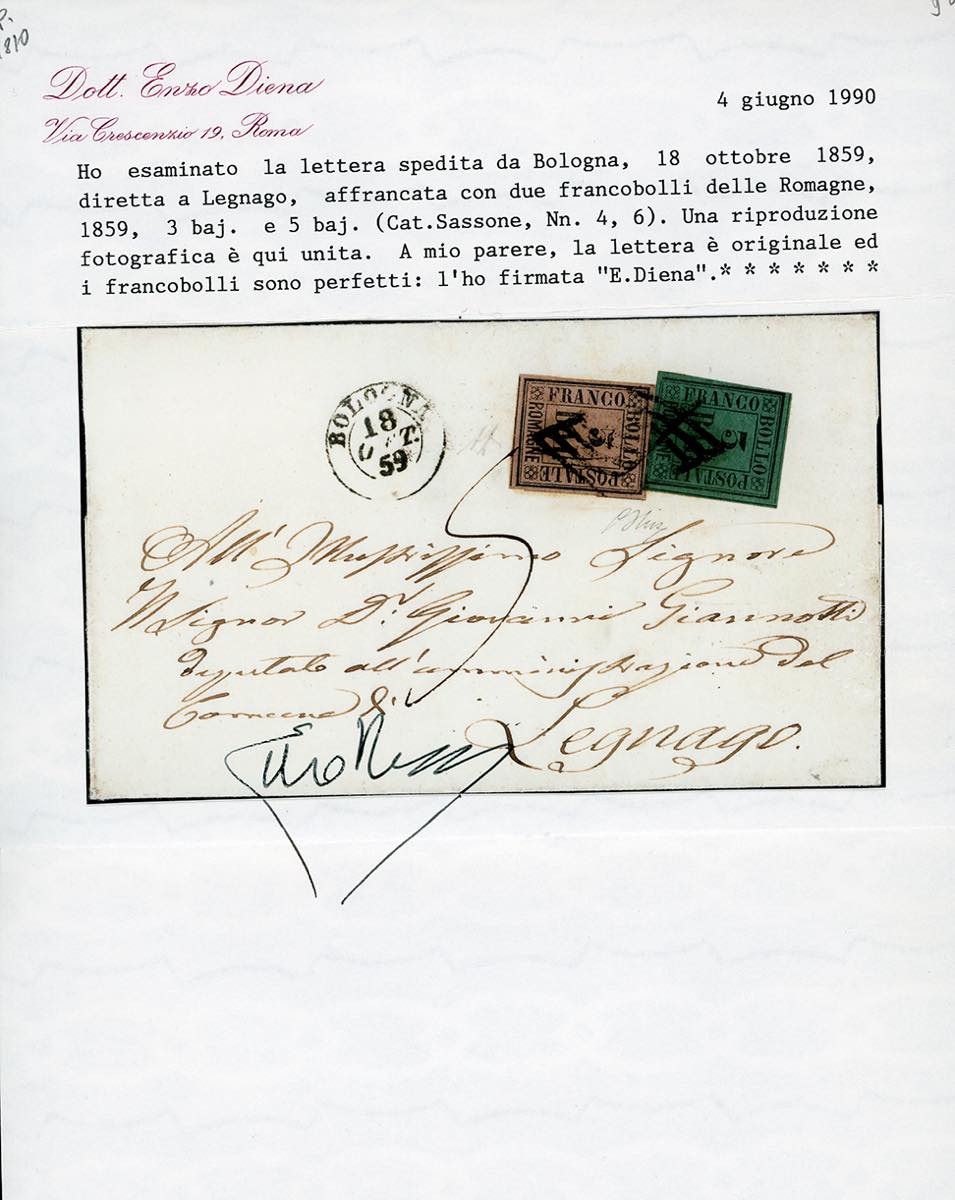 Dott. Enzo Diena
Via Crescenzio 19, Roma
4 giugno 1990
Ho esaminato la lettera spedita da Bologna, 18 ottobre 1859,
diretta a Legnago, affrancata con due francobolli delle Romagne,
1859, 3 baj. e 5 baj. (Cat.Sassone, Nn. 4, 6). Una riproduzione
fotografica è qui unita. A mio parere, la lettera è originale ed
i francobolli sono perfetti: l'ho firmata "E.Diena".* * * * * * *
BOLOGNA
18
OTT.
59
FRANCO
BOLLO
POSTALE
ROMAGNE
FRANCO
BOLLO
POSTALE
5
All' Signore
Il Signor Dr. Giovanni Giannotti
Deputato all'amministrazione del
Comune di
Legnago.